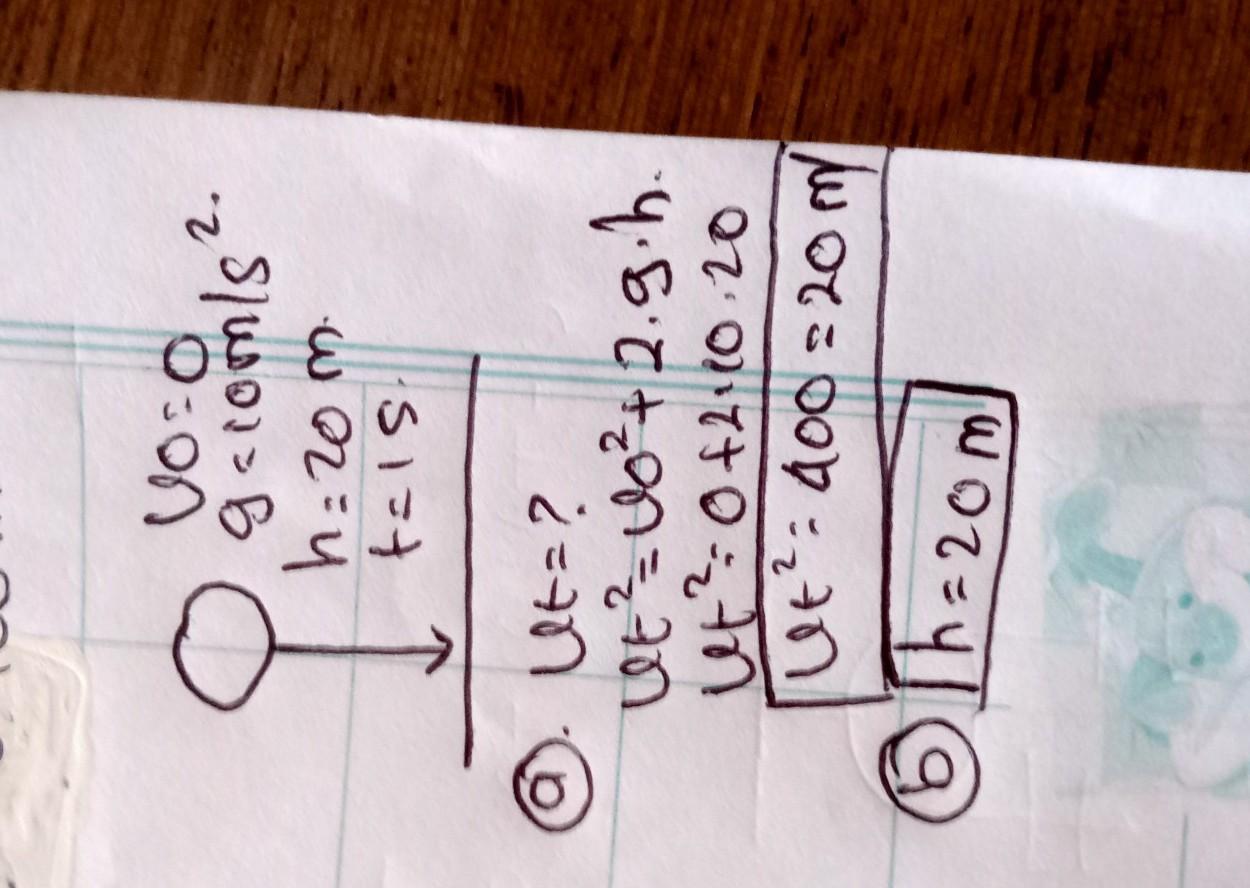 vo = 0
g = 10 m/s².
h = 20 m.
t = 1 s.
a. vt = ?
vt² = vo² + 2.g.h.
vt² = 0 + 2.10.20
vt² = 400 = 20 m/
b h = 20 m